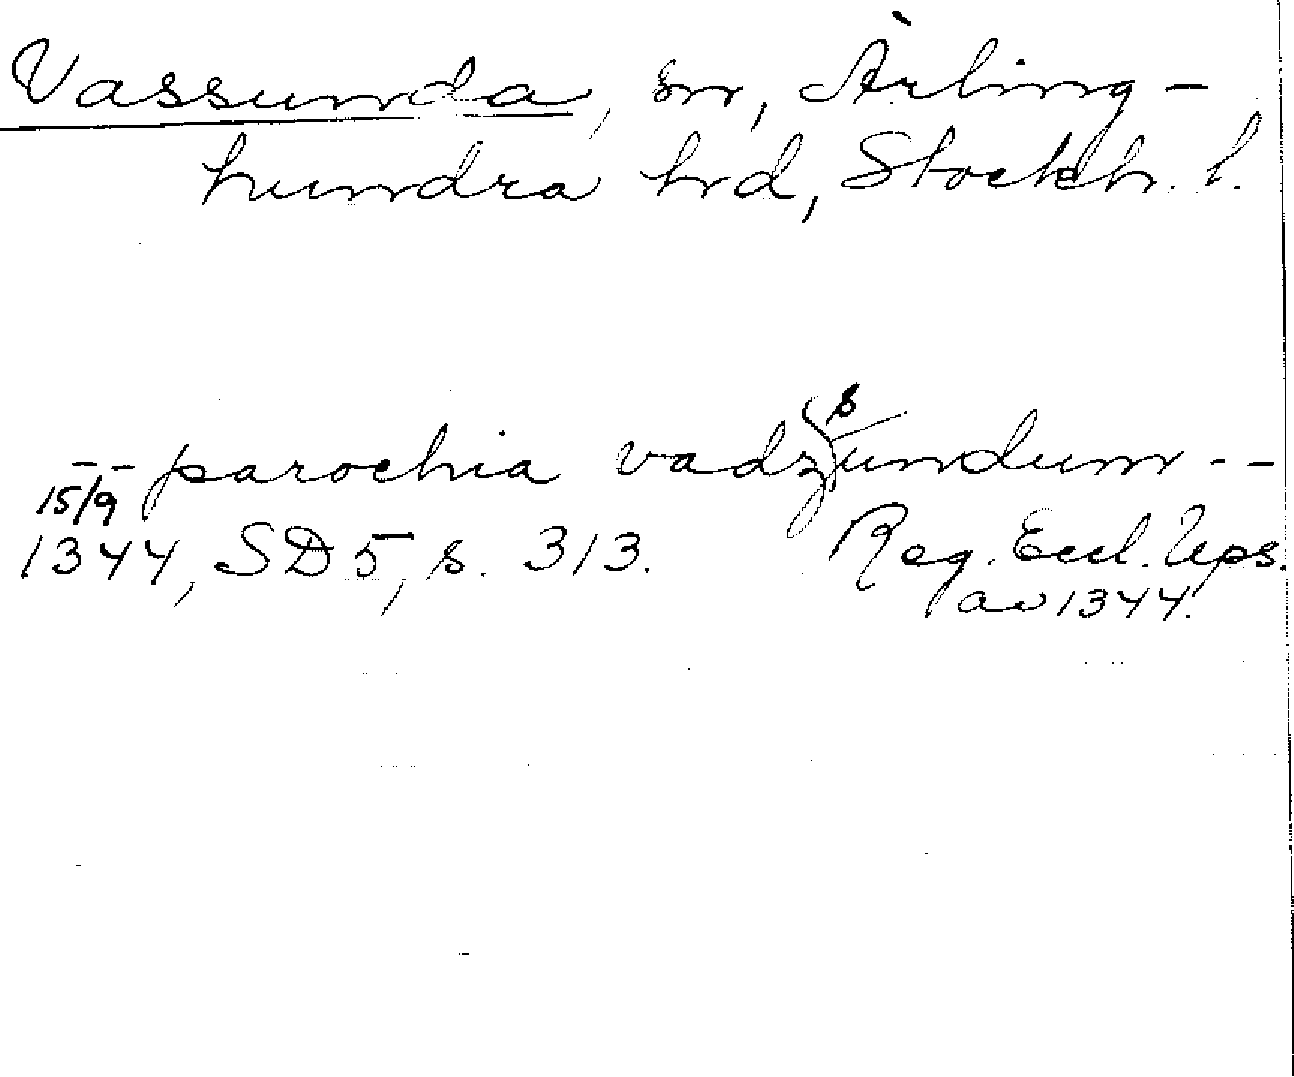 Vassunda, sn, Ärling-
hundra hrd, Stockh. l.
-- parochia vadzsundum --
15/9
1344, SD 5, s. 313. Reg. Eccl. Ups.
av 1344.